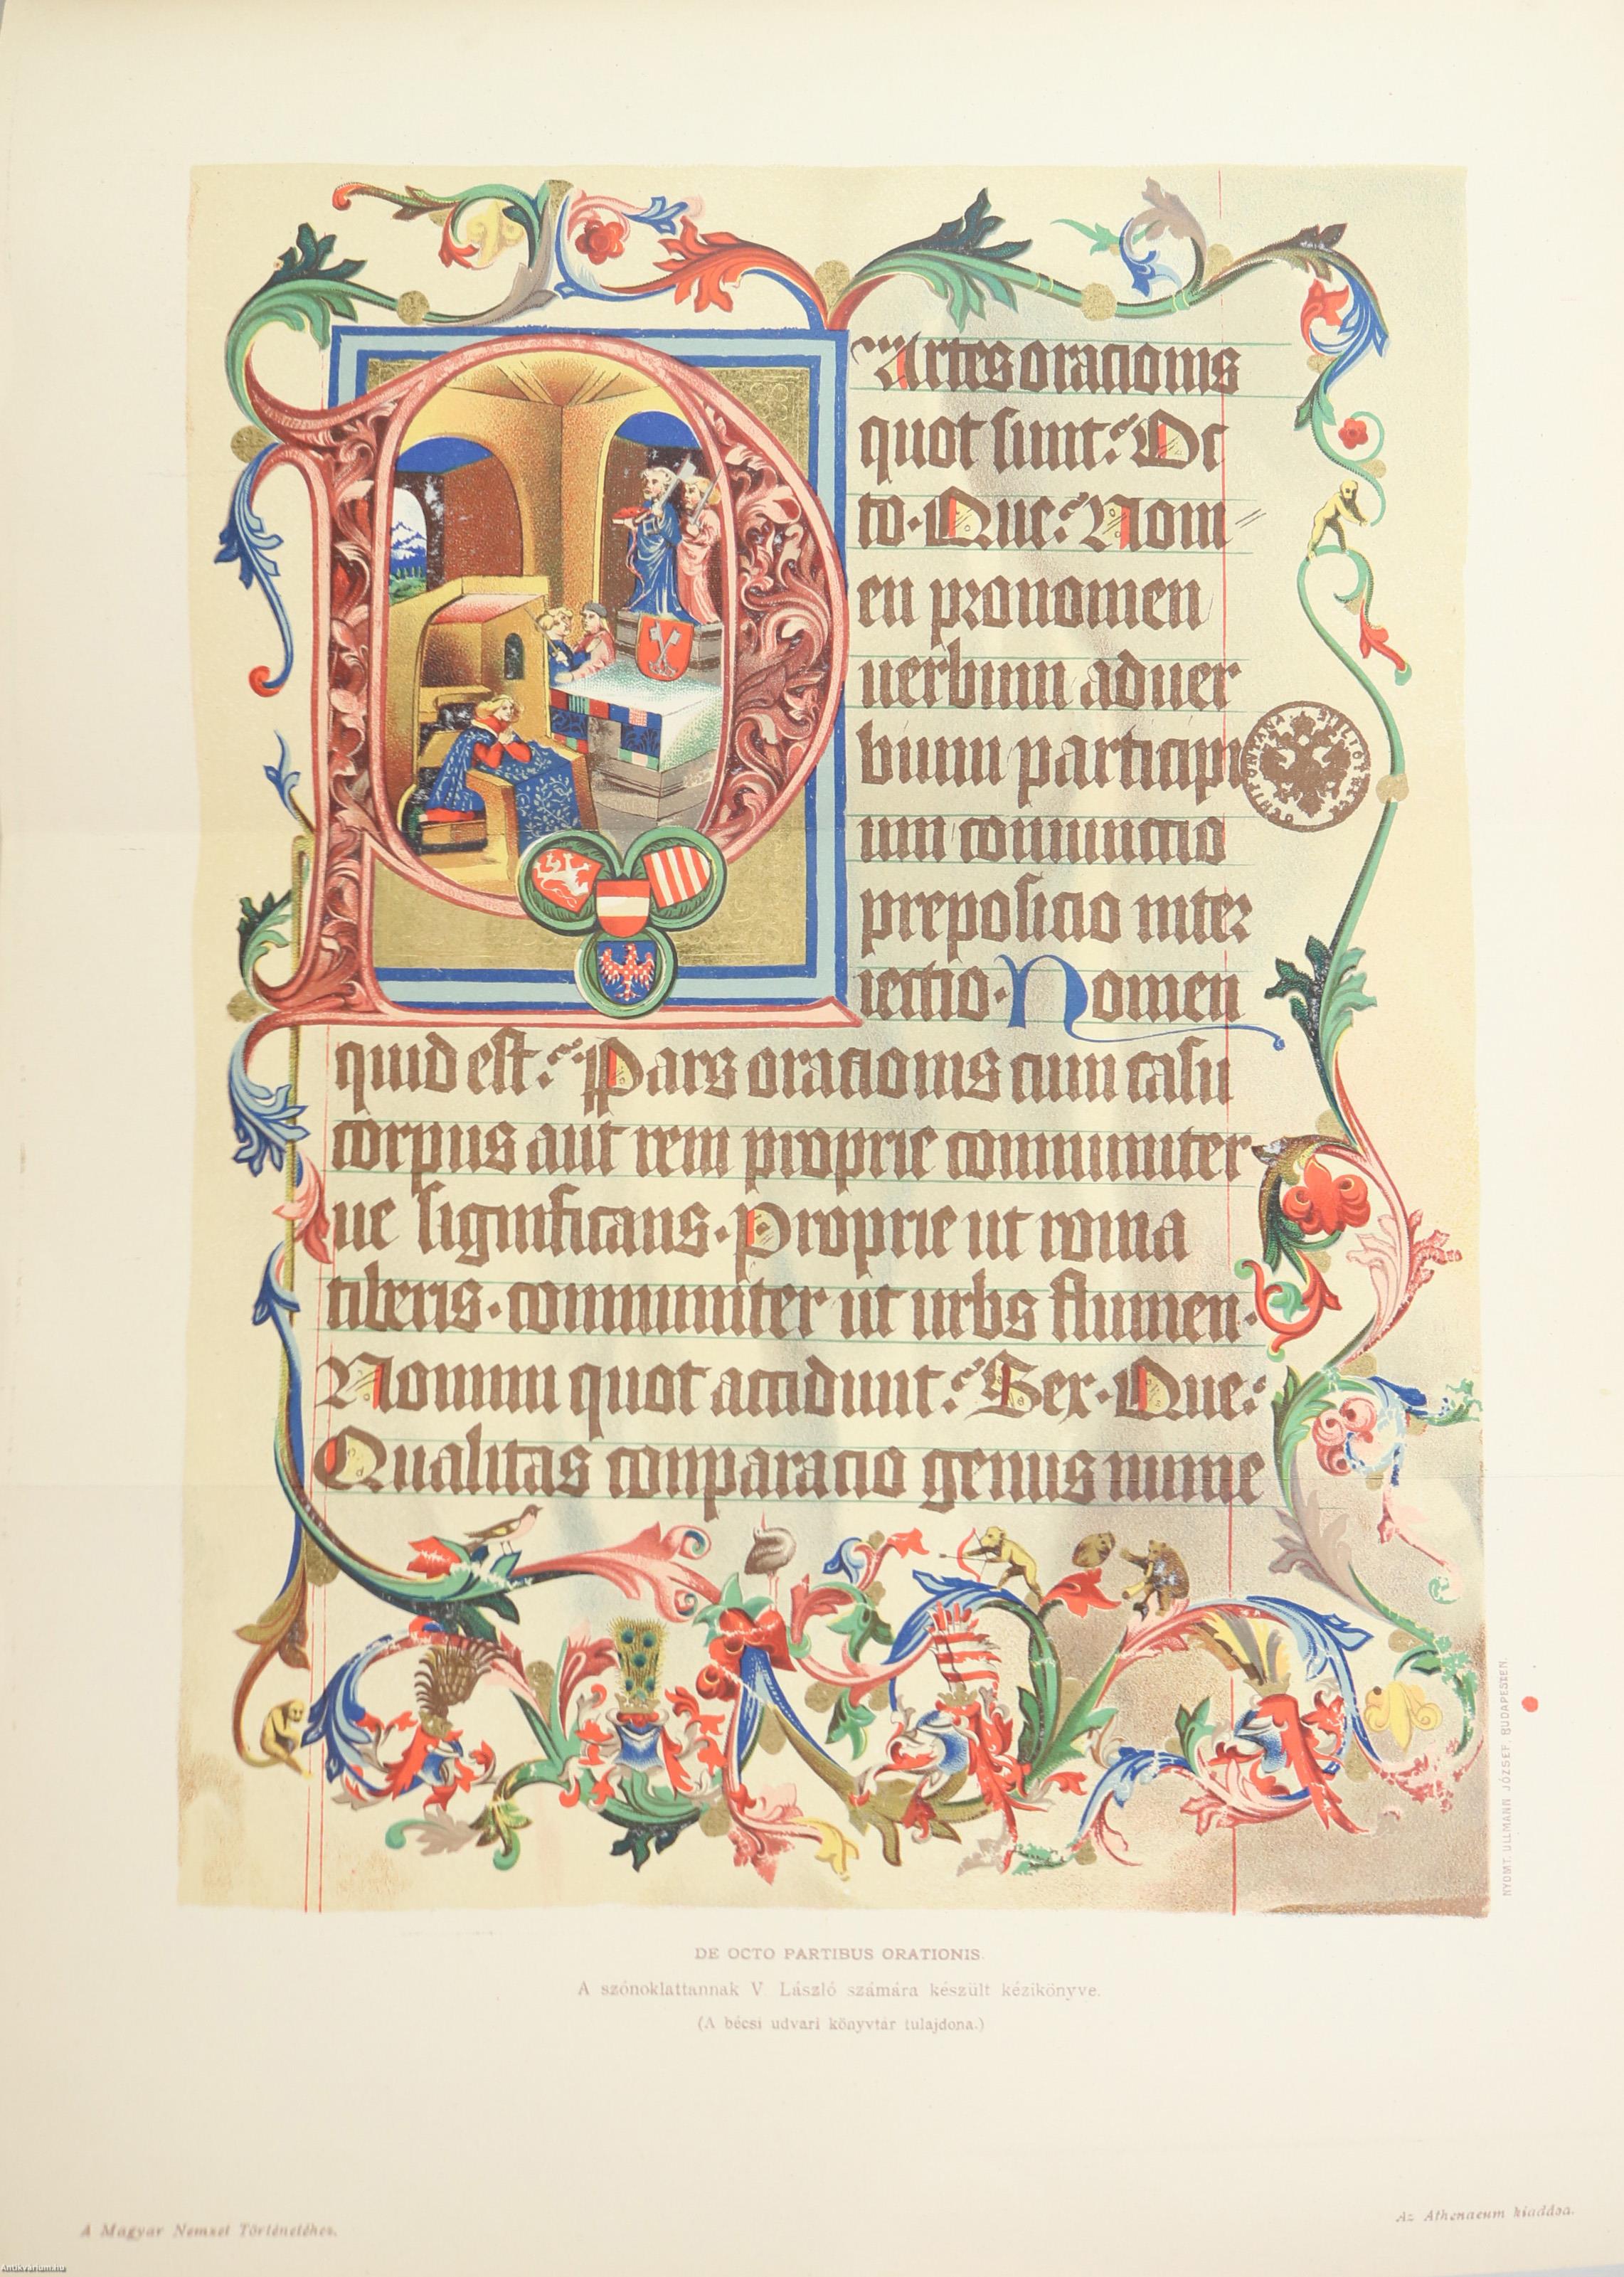 Partes orationis
quot sunt? Oc
to. Que? Nom
en pronomen
uerbum aduer
bium participi
um coniunctio
preposicio inter
iectio. Nomen
quid est? Pars orationis cum casu
corpus aut rem proprie communiter
ue significans. Proprie ut roma
tiberis. communiter ut urbs flumen.
Nomini quot accidunt? Sex. Que?
Qualitas conparacio genus nume
NYOMT. ULLMANN JÓZSEF, BUDAPESTEN.
DE OCTO PARTIBUS ORATIONIS.
A szónoklattannak V László számára készült kézikönyve.
(A bécsi udvari könyvtár tulajdona.)
A Magyar Nemzet Történetéhez.
Az Athenaeum kiadása.
Antikvarium.hu